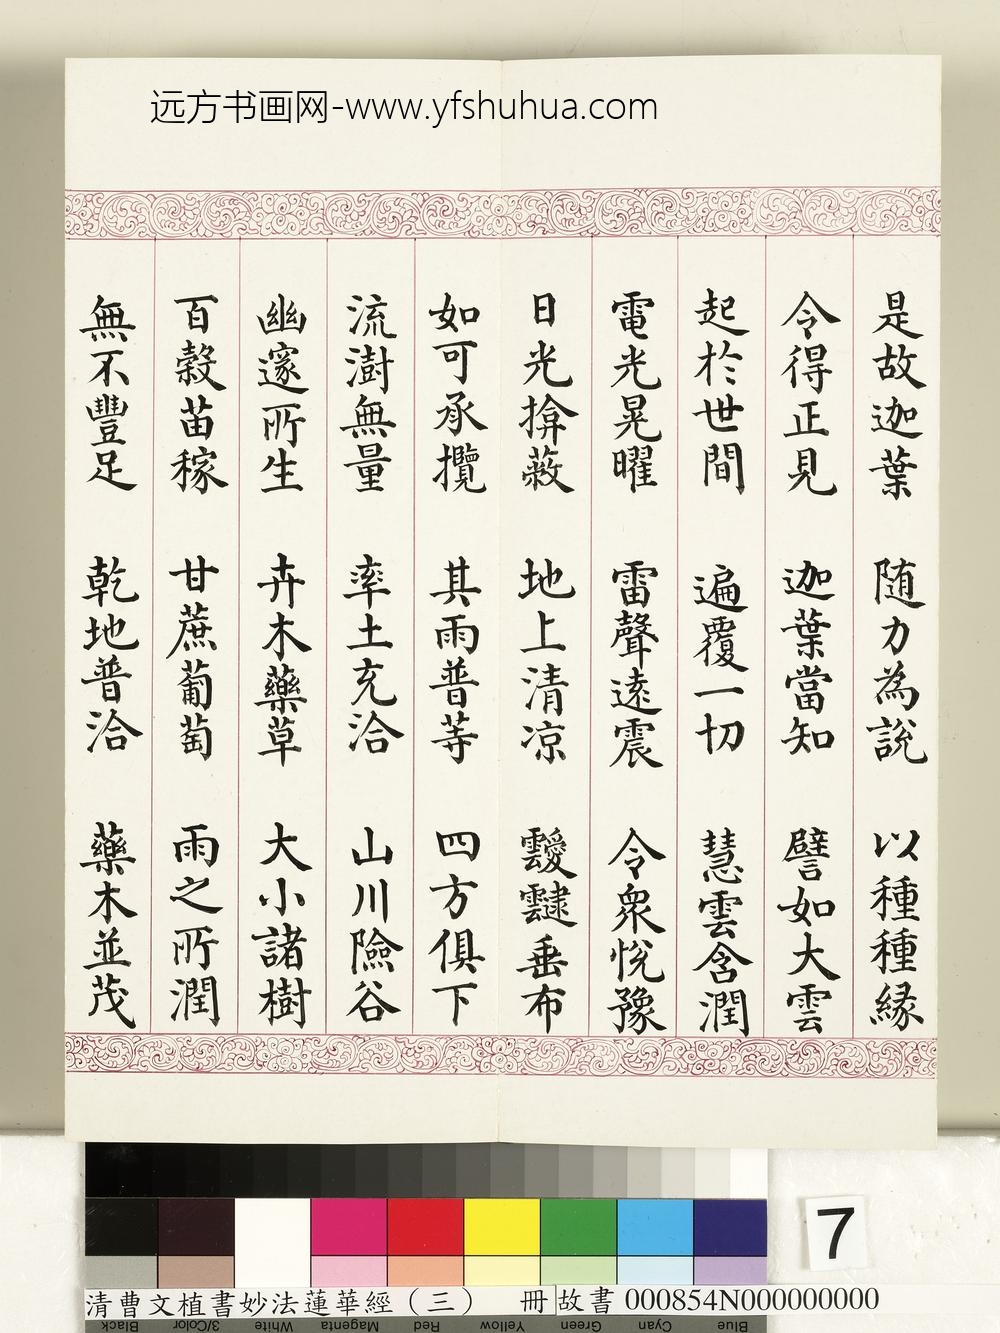 远方书画网-www.yfshuhua.com
是故迦葉 随力為說 以種種緣
令得正見 迦葉當知 譬如大雲
起於世間 遍覆一切 慧雲含潤
電光晃曜 雷聲遠震 令眾悅豫
日光揜蔽 地上清凉 靉靆垂布
如可承攬 其雨普等 四方俱下
流澍無量 率土充洽 山川險谷
幽邃所生 卉木藥草 大小諸樹
百穀苗稼 甘蔗葡萄 雨之所潤
無不豐足 乾地普洽 藥木並茂
7
清曹文植書妙法蓮華經（三） 冊 故書 000854N000000000
Black 3/Color White Magenta Red Yellow Green Cyan Blue